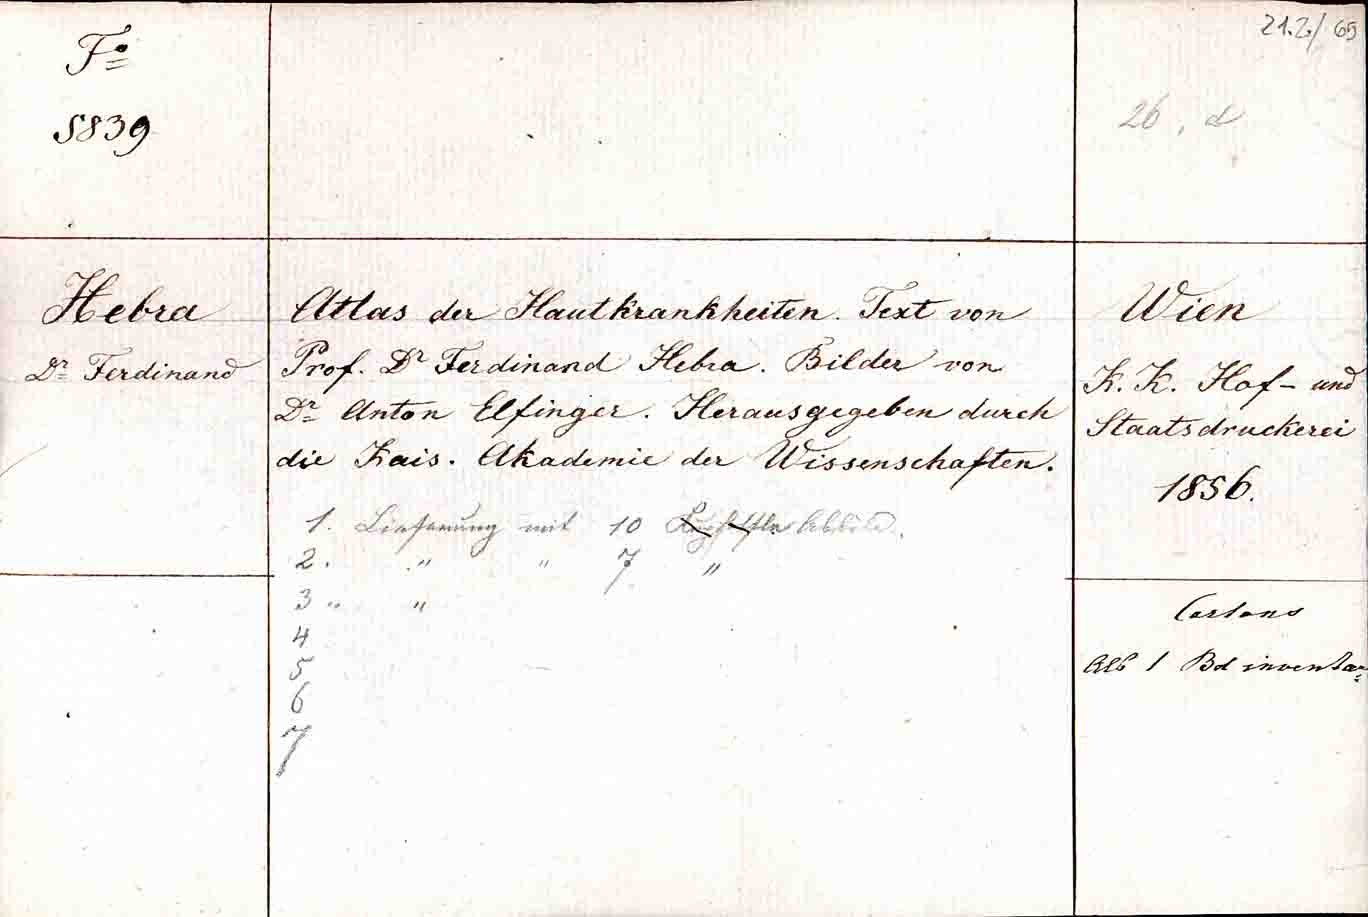 21.2./65
Fo
5839
26, d
Hebra
Dr Ferdinand
Atlas der Hautkrankheiten. Text von
Prof. Dr Ferdinand Hebra. Bilder von
Dr Anton Elfinger. Herausgegeben durch
die Kais. Akademie der Wissenschaften.
1. Lieferung mit 10
2. " " 7 "
3 " "
4
5
6
7
Wien
K. K. Hof- und
Staatsdruckerei
1856.
Cartons
als 1 Bd inventar